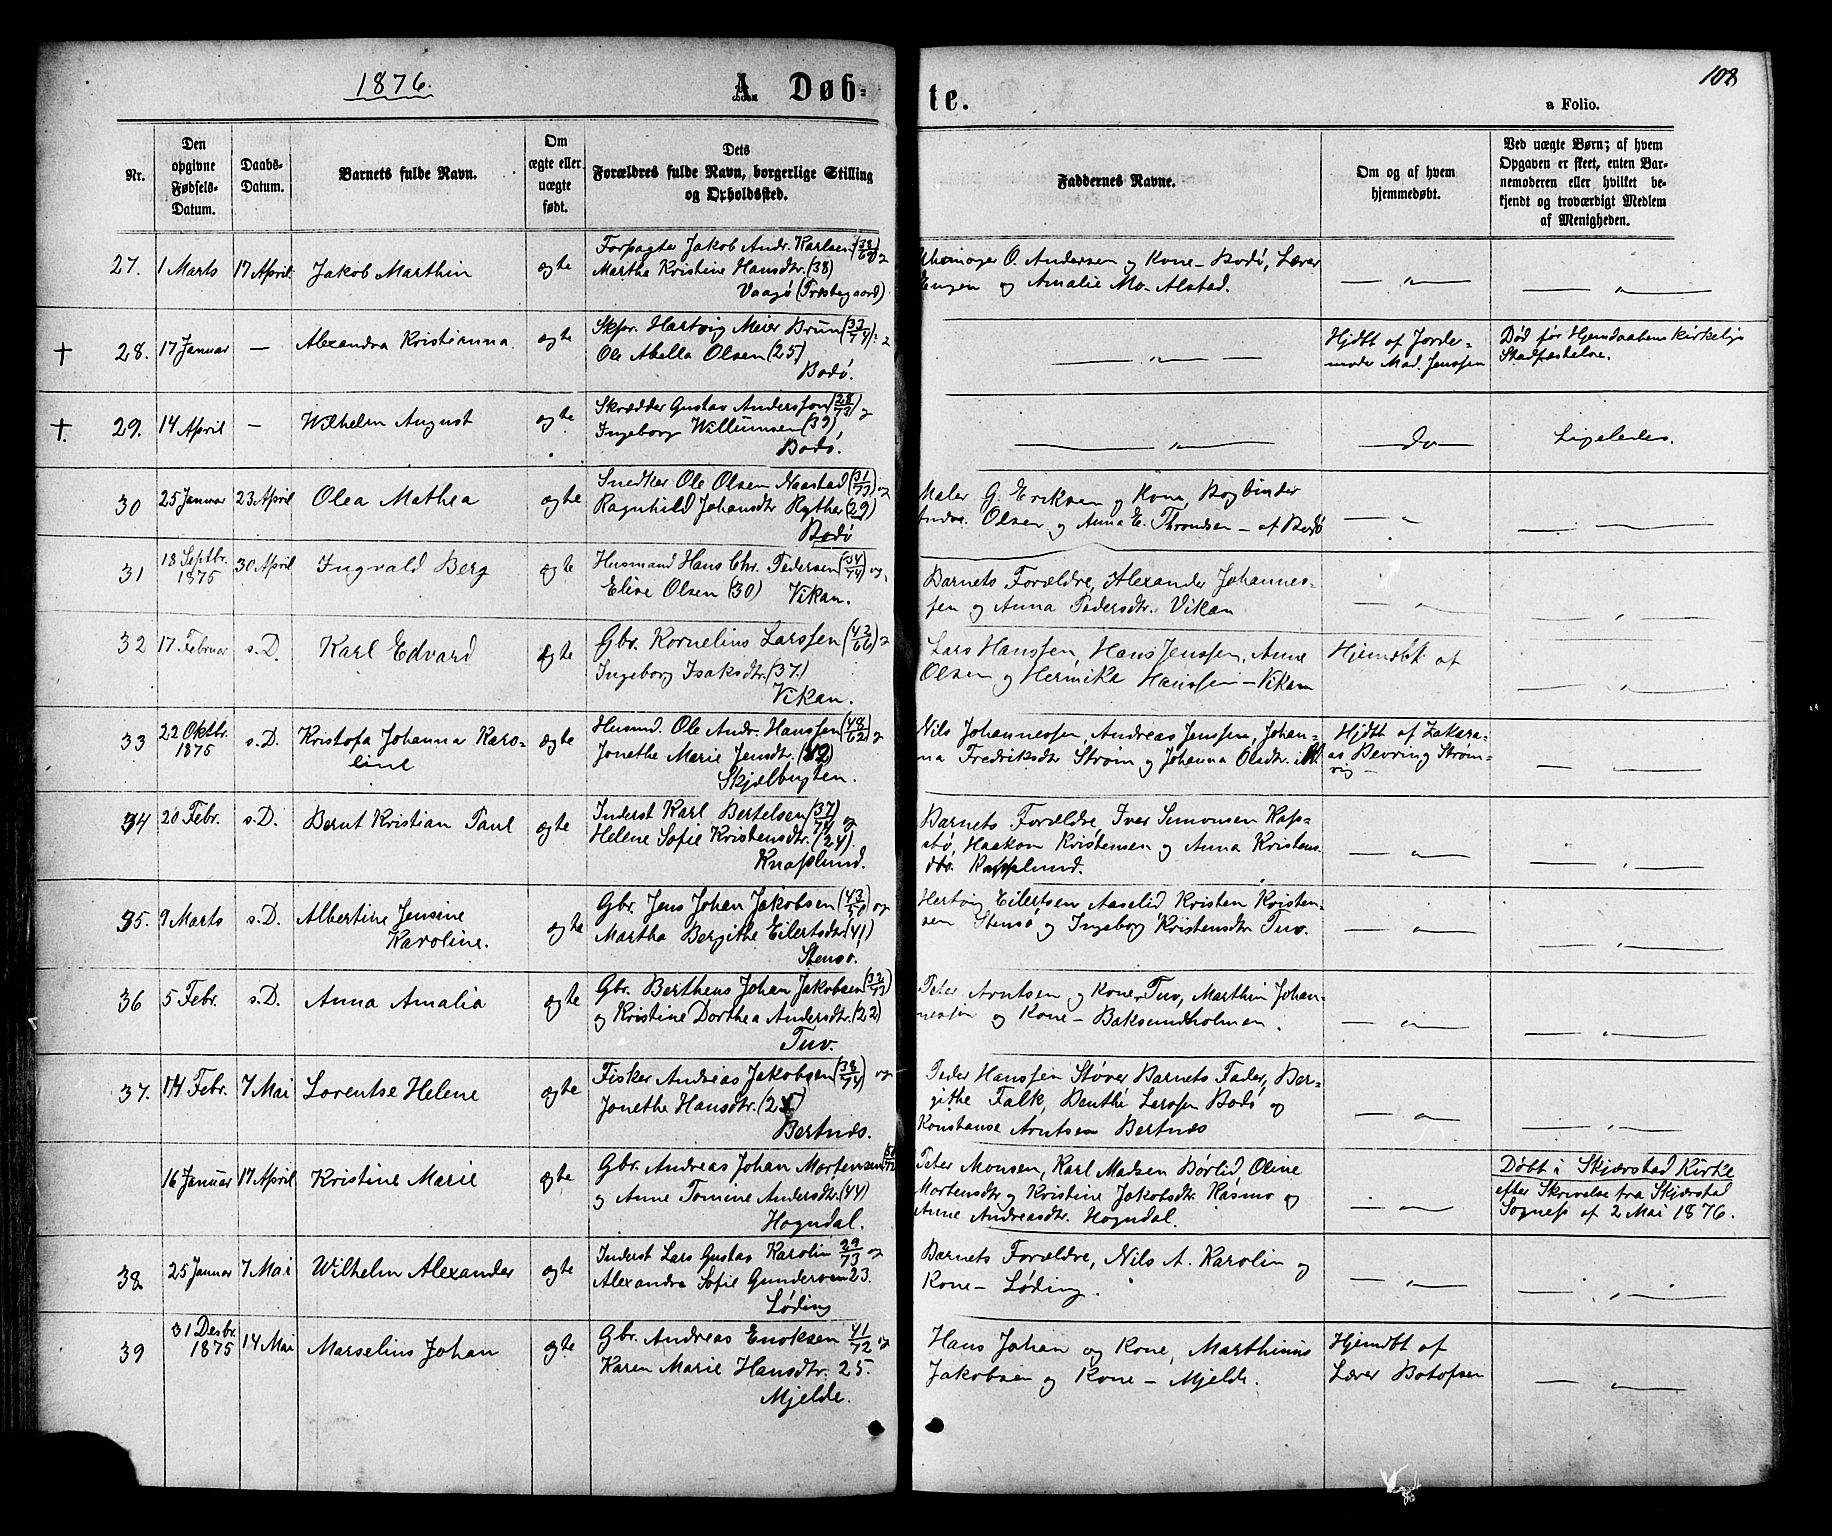 1876.
A. Døb-
te.
108
a Folio.
Nr.
Den opgivne Fødsels-Datum.
Daabs-Datum.
Barnets fulde Navn.
Om ægte eller uægte født.
Dets Forældres fulde Navn, borgerlige Stilling og Opholdssted.
Faddernes Navne.
Om og af hvem hjemmedøbt.
Ved uægte Børn; af hvem Opgaven er skeet, enten Barnemoderen eller hvilket bekjendt og troværdigt Medlem af Menigheden.
27. 1 Marts 17 April Jakob Marthin ægte
Forpagter Jakob Andr. Karlsen (38/69) &
Martha Kristine Hansdtr. (38)
Vaagø (Prestegaard)
O. Andersen og Kone - Bodø, Lærer
Engen og Amalie Mo - Alstad.
† 28. 17 Januar — Alexandra Kristianna ægte
Skpr. Hartvig Meier Brun (33/74) &
Ole Abella Olsen (25)
Bodø.
Hjdbt af Jorde-
moder Mad. Jenssen
Død før Hjemdaabens kirkelige
Stadfæstelse.
† 29. 14 April — Wilhelm August ægte
Skrædder Gustav Anderssøn (28/73) &
Ingeborg Willumsen (39)
Bodø.
do
Ligeledes.
30 25 Januar 23 April Olea Mathea ægte
Snedker Ole Olsen Naastad (31/73) og
Ragnhild Johansdtr Rythe (29)
Bodø
Maler G. Eriksen og Kone, Bogbinder
Andr. Olsen og Anna E. Throndsen - af Bodø
31 18 Septbr. 1875 30 April Ingvald Berg ægte
Husmand Hans Chr. Pedersen (34/74) og
Elise Olsen (30) Vikan.
Barnets Forældre, Alexander Johannes-
sen og Anna Pedersdtr. Vikan
32 17 Februar s.D. Karl Edvard ægte
Gbr. Kornelius Larssen (42/66) &
Ingeborg Isaksdtr. (37)
Vikan.
Lars Hanssen, Hans Jenssen, Anne
Olsen og Hermika Hanssen - Vikan
Hjemdbt af
33 22 Oktbr. 1875 s.D. Kristofa Johanna Karo-
line ægte
Husmd. Ole Andr. Hanssen (48/62) &
Jonethe Marie Jensdtr. (42)
Skjælbugten.
Nils Johannessen, Andreas Jenssen, Johan-
na Fredriksdtr Strøm og Johanna Olsdtr.
Hjdbt af Zakari-
as Bevring Strøm-
vig -
34 20 Febr. s.D. Bernt Kristian Paul ægte
Inderst Karl Bertelsen (37/74) og
Helene Sofie Kristensdtr. (24)
Knaplund.
Barnets Forældre, Iver Simonsen Kap-
stø, Haakon Kristensen og Anna Kristens-
dtr. Knaplund.
35. 9 Marts s.D. Albertine Jensine
Karoline. ægte
Gbr. Jens Johan Jakobsen (43/50) og
Martha Bergithe Eilertsdtr (41)
Stensø.
Hertvig Eilertsen Aaselid Kristen Kristen-
sen Stensø og Ingeborg Kristensdtr Tuv.
36 5 Febr. s.D. Anna Amalia ægte
Gbr. Bertheus Johan Jakobsen (32/73)
og Kristine Dorthea Andersdtr. (22)
Tuv.
Peter Arntsen og Kone, Tuv, Marthin Johan-
nessen og Kone - Baksundholmen.
37. 14 Febr. 7 Mai Lorentse Helene ægte
Fisker Andreas Jakobsen (38/74) og
Jonethe Hansdtr. (25)
Bertnæs.
Peder Hanssen Støver Barnets Fader, Ber-
githe Falk, Benthe Larssen Bodø og
Konstanse Arntsen Bertnæs
16 Januar 17 April Kristine Marie ægte
Gbr. Andreas Johan Mortensen
og Anne Tomine Andersdtr. (44)
Hogndal.
Peter Monsen, Karl Madsen Børlid, Oline
Mortensdtr og Kristine Jakobsdtr. Kasmo og
Anne Andreasdtr. Hogndal.
Døbt i Skjærstad Kirke
efter Skrivelse fra Skjerstad
Sognepr. af 2 Mai 1876.
38 25 Januar 7 Mai Wilhelm Alexander ægte
Inderst Lars Gustav Karolin 29/73 og
Alexandra Sofie Gundersen 23.
Løding
Barnets Forældre, Nils A. Karolin og
Kone - Løding.
39 31 Desbr. 1875 14 Mai Marselius Johan ægte
Gbr. Andreas Enoksen 41/72 &
Karen Marie Hansdtr. 25.
Mjelde.
Hans Johan og Kone, Marthinus
Jakobsen og Kone - Mjelde.
Hjemdbt af
Lærer Botofsen